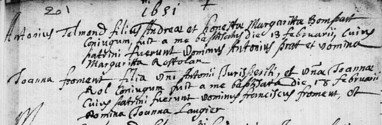 1651
Antonius Telmond filius Andreæ et honestæ Margaritta Bompart
Coniugum fuit a me baptisatus die 13 februarii, Cuius
patrini fuerunt dominus Antonius prat et domina
Margaritta Rostolan
Joanna froment filia Antonii et Joanna
Rol Coniugum fuit a me baptisata die 13 februarii
Cuius patrini fuerunt dominus franciscus froment, et
Domina Joanna Laugier